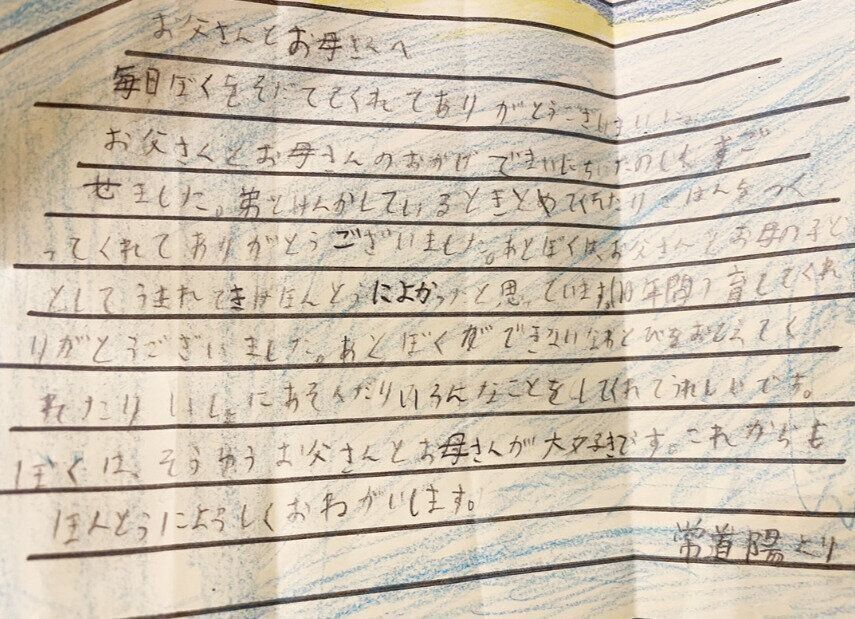 お父さんとお母さんへ
毎日ぼくをそだててくれてありがとうございました。
お父さんとお母さんのおかげでまいにちたのしくすご
せました。弟とけんかしているときとめてくれたりごはんをつく
ってくれてありがとうございました。あとぼくは、お父さんとお母の子ど
としてうまれてきてほんとうによかったと思っています。年間育ててくれ
りがとうございました。あとぼくができないなわとびをおしえてく
れたりいっしにあそんだりいろんなことをしてくれてうれしいです。
ぼくは、そうゆうお父さんとお母さんが大好きです。これからも
ほんとうによろしくおねがいします。
常道陽より